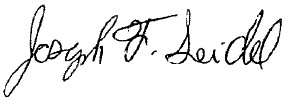 Joseph F. Seidel